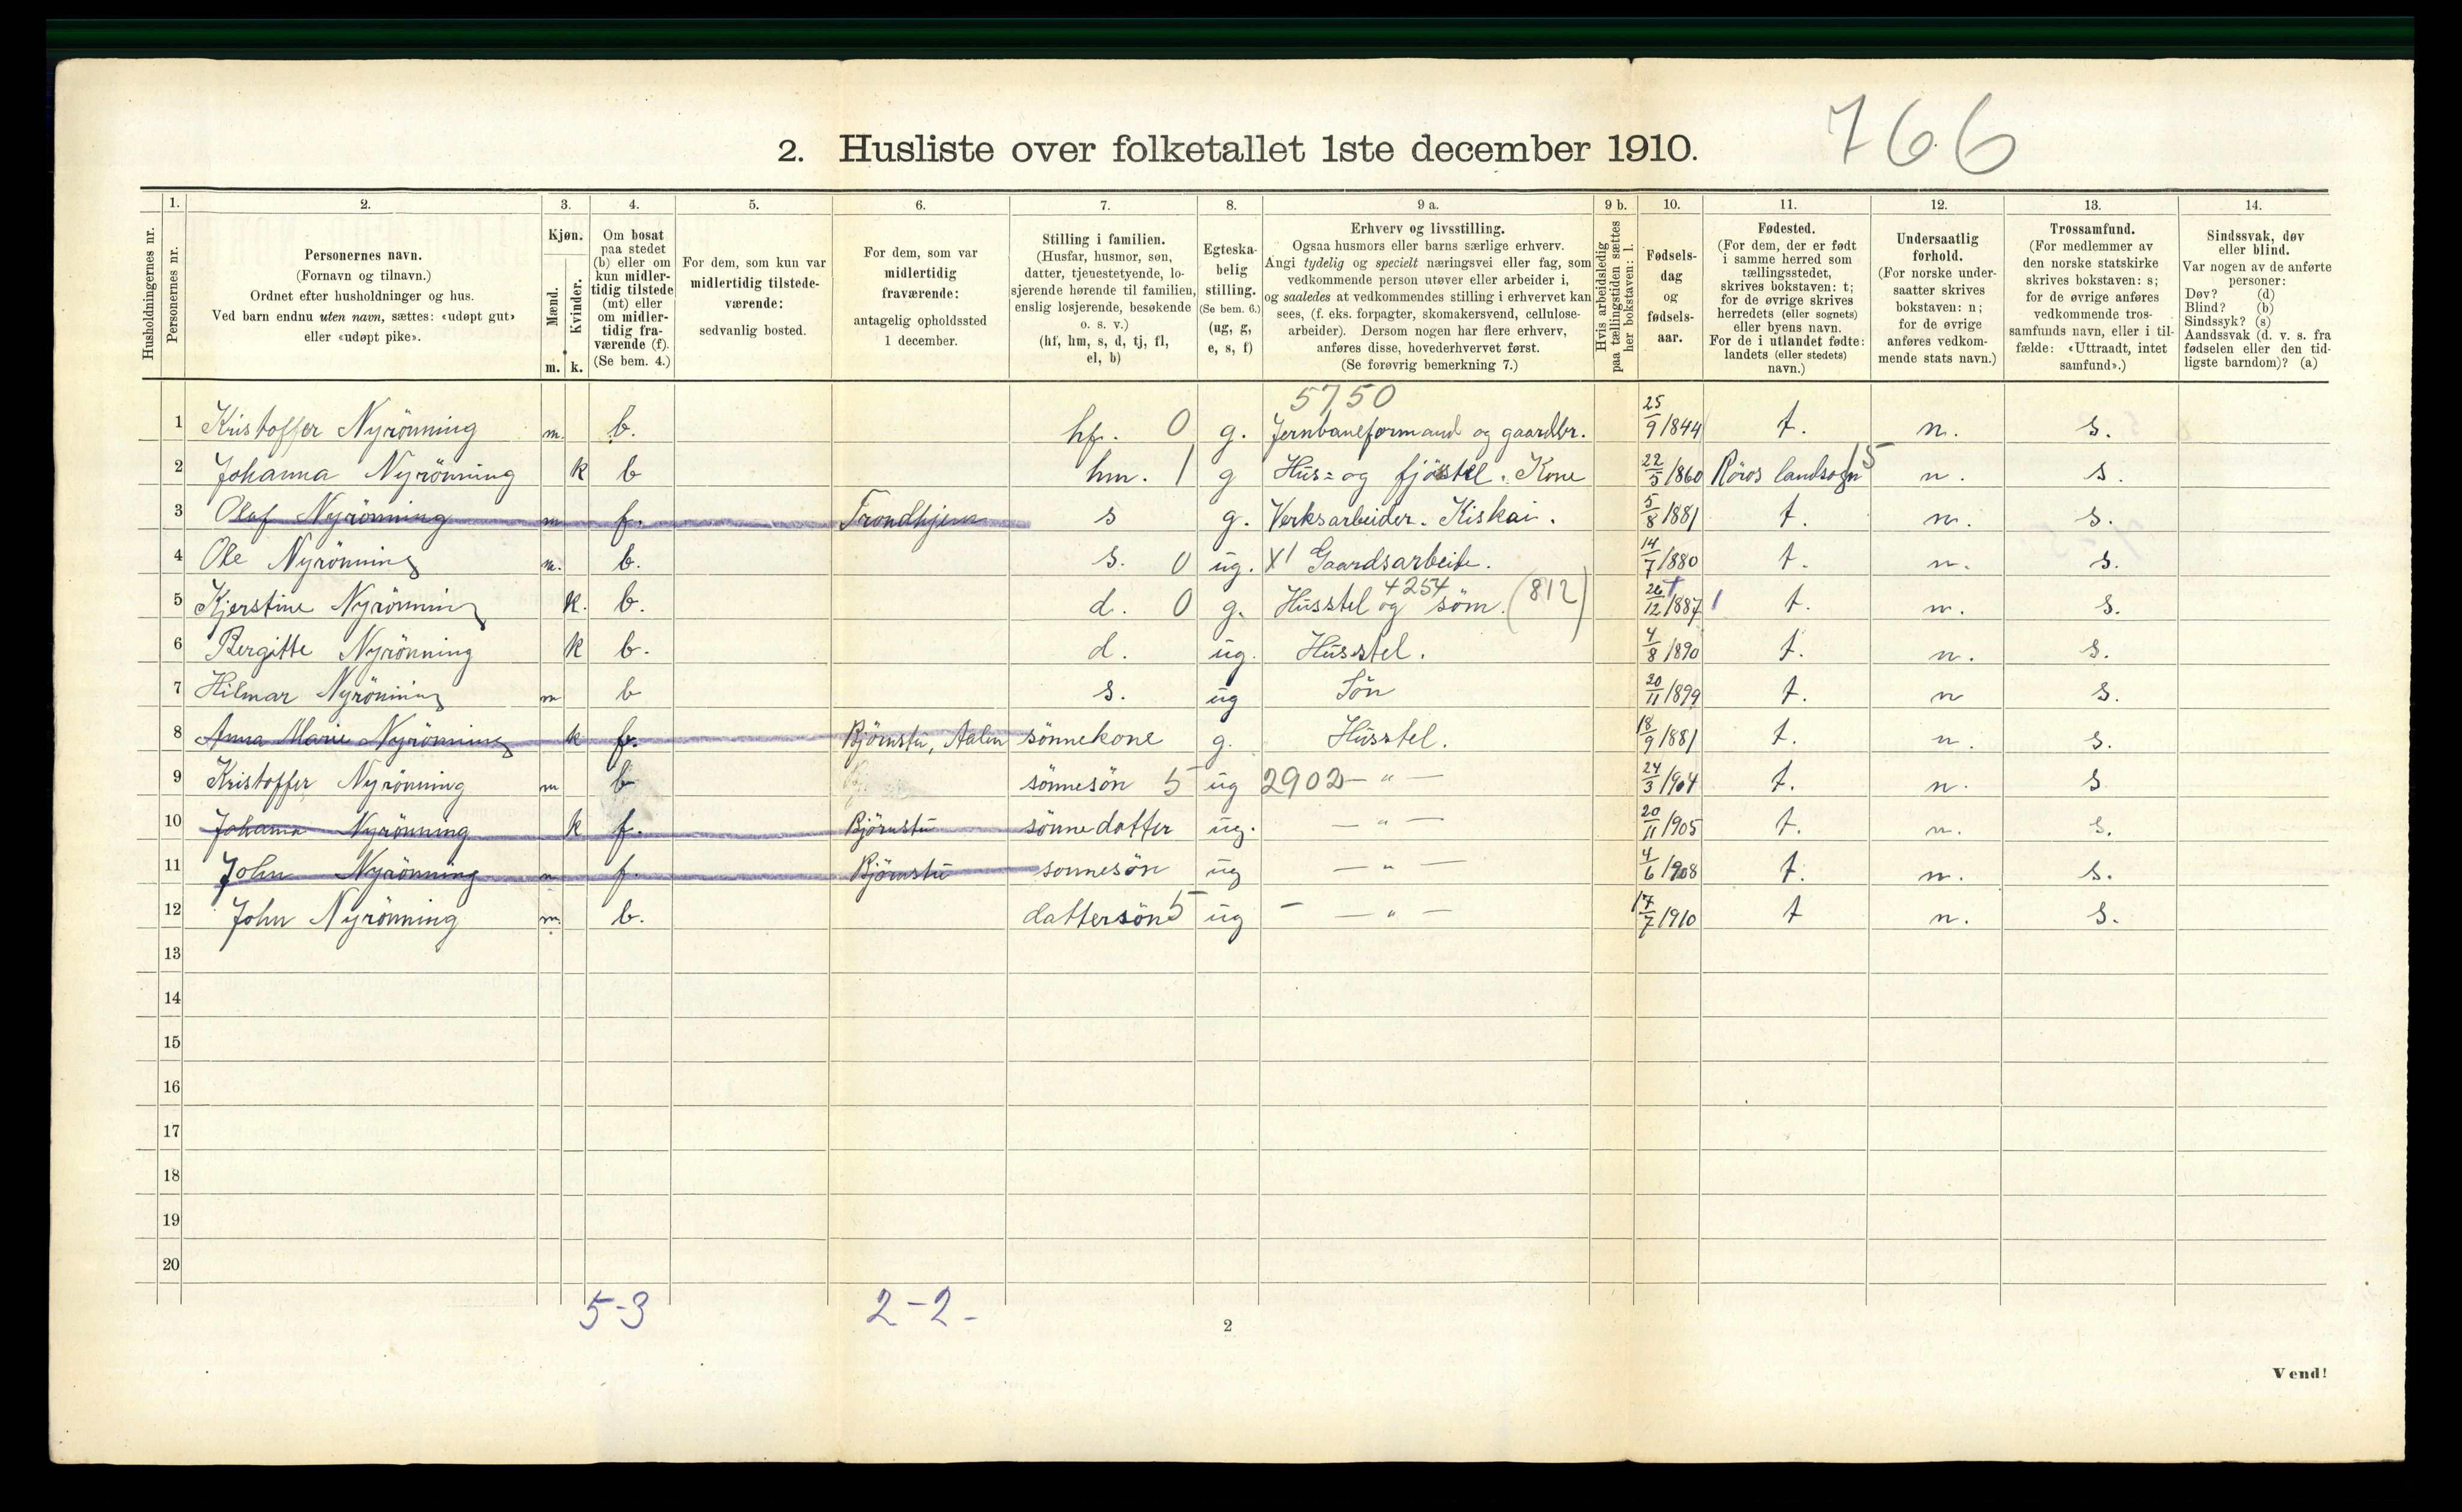 766
2. Husliste over folketallet 1ste december 1910.
1. 2. 3. 4. 5. 6. 7. 8. 9 a. 9 b. 10. 11. 12. 13. 14.
Husholdningernes nr.
Personernes nr.
Personernes navn.
(Fornavn og tilnavn.)
Ordnet efter husholdninger og hus.
Ved barn endnu uten navn, sættes: «udøpt gut»
eller «udøpt pike».
Kjøn.
Mænd.
Kvinder.
m. k.
Om bosat
paa stedet
(b) eller om
kun midler-
tidig tilstede
(mt) eller
om midler-
tidig fra-
værende (f).
(Se bem. 4.)
For dem, som kun var
midlertidig tilstede-
værende:
sedvanlig bosted.
For dem, som var
midlertidig
fraværende:
antagelig opholdssted
1 december.
Stilling i familien.
(Husfar, husmor, søn,
datter, tjenestetyende, lo-
sjerende hørende til familien,
enslig losjerende, besøkende
o. s. v.)
(hf, hm, s, d, tj, fl,
el, b)
Egteska-
belig
stilling.
(Se bem. 6.)
(ug, g,
e, s, f)
Erhverv og livsstilling.
Ogsaa husmors eller barns særlige erhverv.
Angi tydelig og specielt næringsvei eller fag, som
vedkommende person utøver eller arbeider i,
og saaledes at vedkommendes stilling i erhvervet kan
sees, (f. eks. forpagter, skomakersvend, cellulose-
arbeider). Dersom nogen har flere erhverv,
anføres disse, hovederhvervet først.
(Se forøvrig bemerkning 7.)
Hvis arbeidsledig
paa tællingstiden sættes
her bokstaven: l.
Fødsels-
dag
og
fødsels-
aar.
Fødested.
(For dem, der er født
i samme herred som
tællingsstedet,
skrives bokstaven: t;
for de øvrige skrives
herredets (eller sognets)
eller byens navn.
For de i utlandet fødte:
landets (eller stedets)
navn.)
Undersaatlig
forhold.
(For norske under-
saatter skrives
bokstaven: n;
for de øvrige
anføres vedkom-
mende stats navn.)
Trossamfund.
(For medlemmer av
den norske statskirke
skrives bokstaven: s;
for de øvrige anføres
vedkommende tros-
samfunds navn, eller i til-
fælde: «Uttraadt, intet
samfund».)
Sindssvak, døv
eller blind.
Var nogen av de anførte
personer:
Døv? (d)
Blind? (b)
Sindssyk? (s)
Aandssvak (d. v. s. fra
fødselen eller den tid-
ligste barndom)? (a)
5750
1 Kristoffer Nyrönning m. b. hf. 0 g. Jernbaneformand og gaardbr. 25/9 1844 t. n. s.
2 Johanna Nyrönning k b hm. 1 g Hus= og fjöstel. Kone 22/5 1860 Röros landsogn 5 n. s.
3 Olaf Nyrönning m f. Trondhjem s g. Verksarbeider. Kiskai. 5/8 1881 t. n. s.
4 Ole Nyrönning m. b. s. 0 ug. X1 Gaardsarbeide. 14/7 1880 t. n. s.
5 Kjerstine Nyrönning k. b. d. 0 g. Husstel og söm. 4254 (812) 26/12 1887 t. n. s.
6 Bergitte Nyrönning k b. d. ug. Husstel. 4/8 1890 t. n. s.
7 Hilmar Nyrönning m b s. ug Sön 20/11 1899 t. n s.
8 Anna Marie Nyrönning k f. Björnstu, Aalen sönnekone g. Husstel. 18/9 1881 t. n. s.
9 Kristoffer Nyrönning m b sönnesön 5 ug 2902 — " — 24/3 1904 t. n. s
10 Johanna Nyrönning k f. Björnstu sönnedatter ug. — " — 20/11 1905 t. n. s.
11 John Nyrönning m f. Björnstu sonnesön ug — " — 4/6 1908 t. n. s.
12 John Nyrönning m. b. dattersön 5 ug — " — 17/7 1910 t n. s.
13
14
15
16
17
18
19
20
5-3 2-2-
2
Vend!